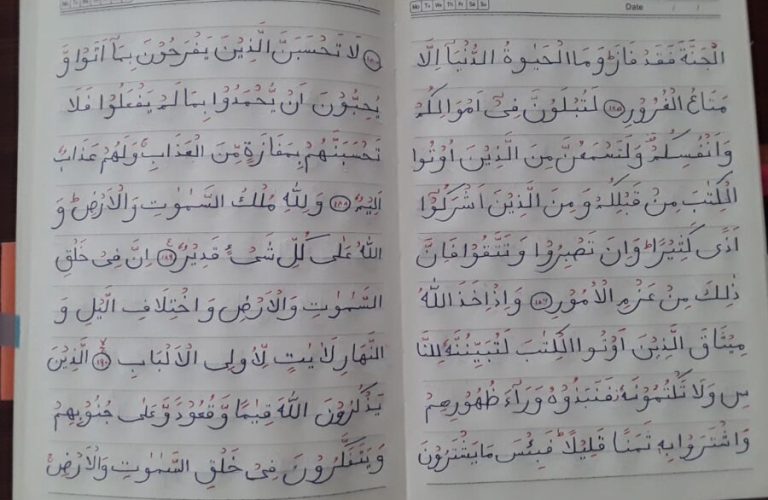 Mo Tu We Th Fr Sa Su
Date / /
الْجَنَّةَ فَقَدْ فَازَ ؕ وَمَا الْحَيٰوةُ الدُّنْيَاۤ اِلَّا
مَتَاعُ الْغُرُوْرِ ﴿۱۸۵﴾ لَتُبْلَوُنَّ فِيْۤ اَمْوَالِكُمْ
وَاَنْفُسِكُمْ ۟ وَلَتَسْمَعُنَّ مِنَ الَّذِيْنَ اُوْتُوا
الْكِتٰبَ مِنْ قَبْلِكُمْ وَمِنَ الَّذِيْنَ اَشْرَكُوْۤا
اَذًى كَثِيْرًا ؕ وَاِنْ تَصْبِرُوْا وَتَتَّقُوْا فَاِنَّ
ذٰلِكَ مِنْ عَزْمِ الْاُمُوْرِ ﴿۱۸۶﴾ وَاِذْ اَخَذَ اللّٰهُ
مِيْثَاقَ الَّذِيْنَ اُوْتُوا الْكِتٰبَ لَتُبَيِّنُنَّهٗ لِلنَّا
سِ وَلَا تَكْتُمُوْنَهٗ ؗ فَنَبَذُوْهُ وَرَآءَ ظُهُوْرِهِمْ
وَاشْتَرَوْا بِهٖ ثَمَنًا قَلِيْلًا ؕ فَبِئْسَ مَا يَشْتَرُوْنَ
﴿۱۸۷﴾ لَا تَحْسَبَنَّ الَّذِيْنَ يَفْرَحُوْنَ بِمَاۤ اَتَوْا وَّ
يُحِبُّوْنَ اَنْ يُّحْمَدُوْا بِمَا لَمْ يَفْعَلُوْا فَلَا
تَحْسَبَنَّهُمْ بِمَفَازَةٍ مِّنَ الْعَذَابِ ۚ وَلَهُمْ عَذَابٌ
اَلِيْمٌ ﴿۱۸۸﴾ وَلِلّٰهِ مُلْكُ السَّمٰوٰتِ وَالْاَرْضِ ؕ وَ
اللّٰهُ عَلٰى كُلِّ شَيْءٍ قَدِيْرٌ ﴿۱۸۹﴾ اِنَّ فِيْ خَلْقِ
السَّمٰوٰتِ وَالْاَرْضِ وَاخْتِلَافِ الَّيْلِ وَ
النَّهَارِ لَاٰيٰتٍ لِّاُولِى الْاَلْبَابِ ﴿۱۹۰﴾ الَّذِيْنَ
يَذْكُرُوْنَ اللّٰهَ قِيٰمًا وَّقُعُوْدًا وَّعَلٰى جُنُوْبِهِمْ
وَيَتَفَكَّرُوْنَ فِيْ خَلْقِ السَّمٰوٰتِ وَالْاَرْضِ ۚ